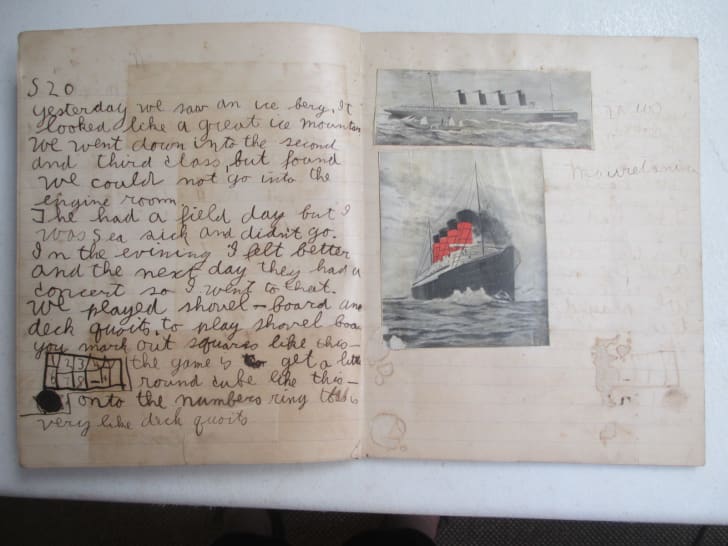 S 20
yesterday we saw an ice berg. It
looked like a great ice mountain
We went down into the second
and third class but found
we could not go into the
engine room
The had a field day but I
was sea sick and didnt go.
In the evining I felt better
and the next day they had a
concert so I went to that.
We played shovel-board and
deck quoits. to play shovel boa
you mark out squares like this-
1 2 3 the game is to get a little
round cube like this-
onto the numbers ring
very like deck quoits
Mauretania